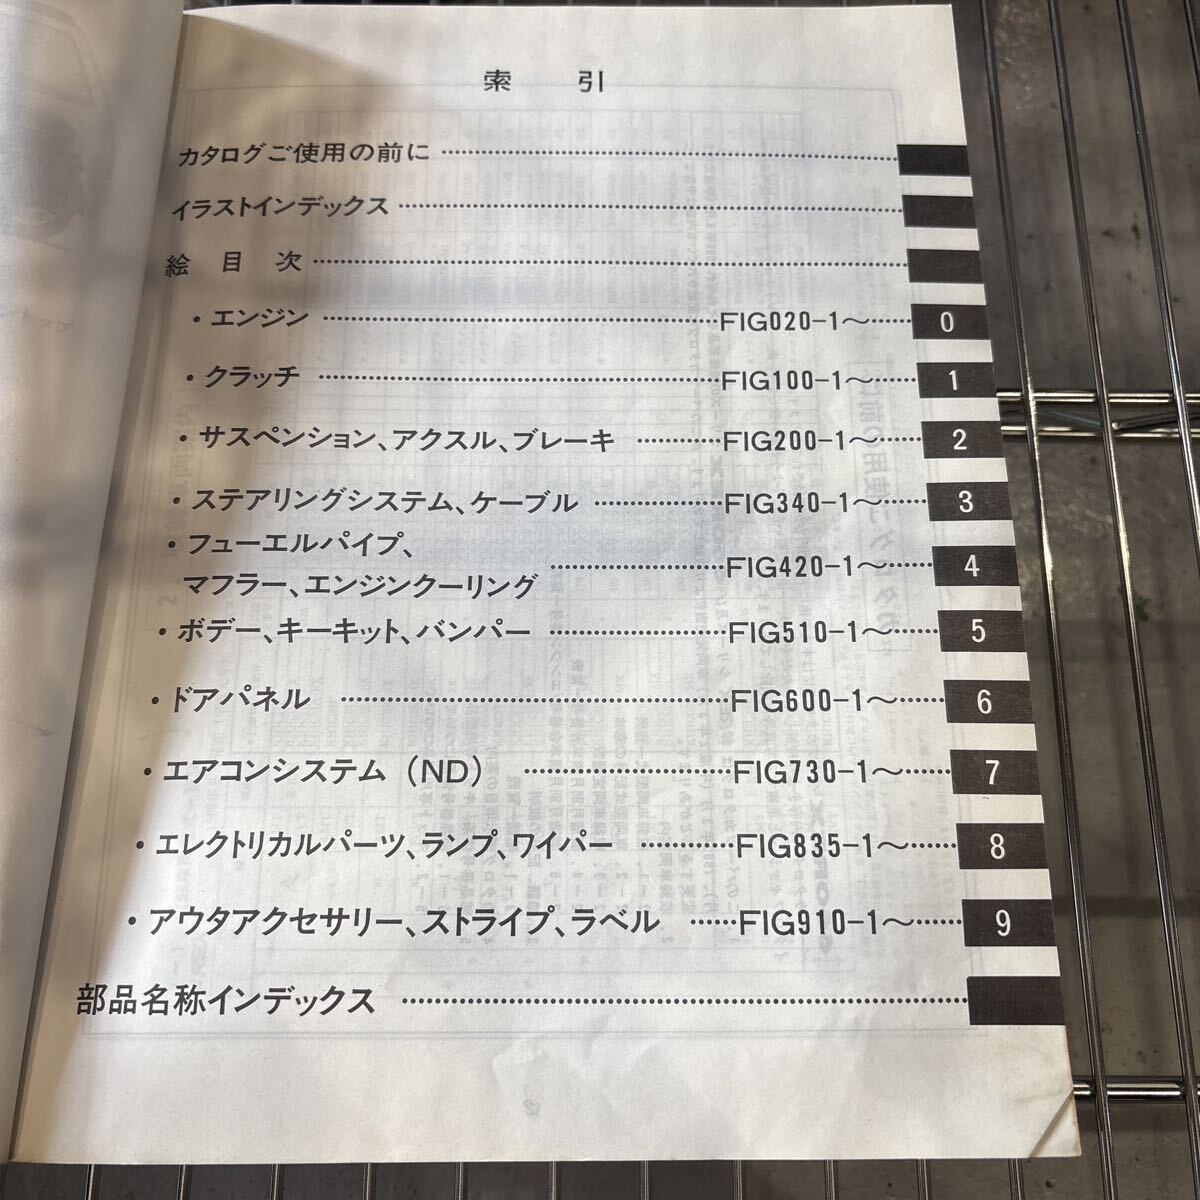 索 引
カタログご使用の前に
イラストインデックス
絵 目 次
・エンジン FIG020-1～ 0
・クラッチ FIG100-1～ 1
・サスペンション、アクスル、ブレーキ FIG200-1～ 2
・ステアリングシステム、ケーブル FIG340-1～ 3
・フューエルパイプ、
マフラー、エンジンクーリング FIG420-1～ 4
・ボデー、キーキット、バンパー FIG510-1～ 5
・ドアパネル FIG600-1～ 6
・エアコンシステム（ND） FIG730-1～ 7
・エレクトリカルパーツ、ランプ、ワイパー FIG835-1～ 8
・アウタアクセサリー、ストライプ、ラベル FIG910-1～ 9
部品名称インデックス